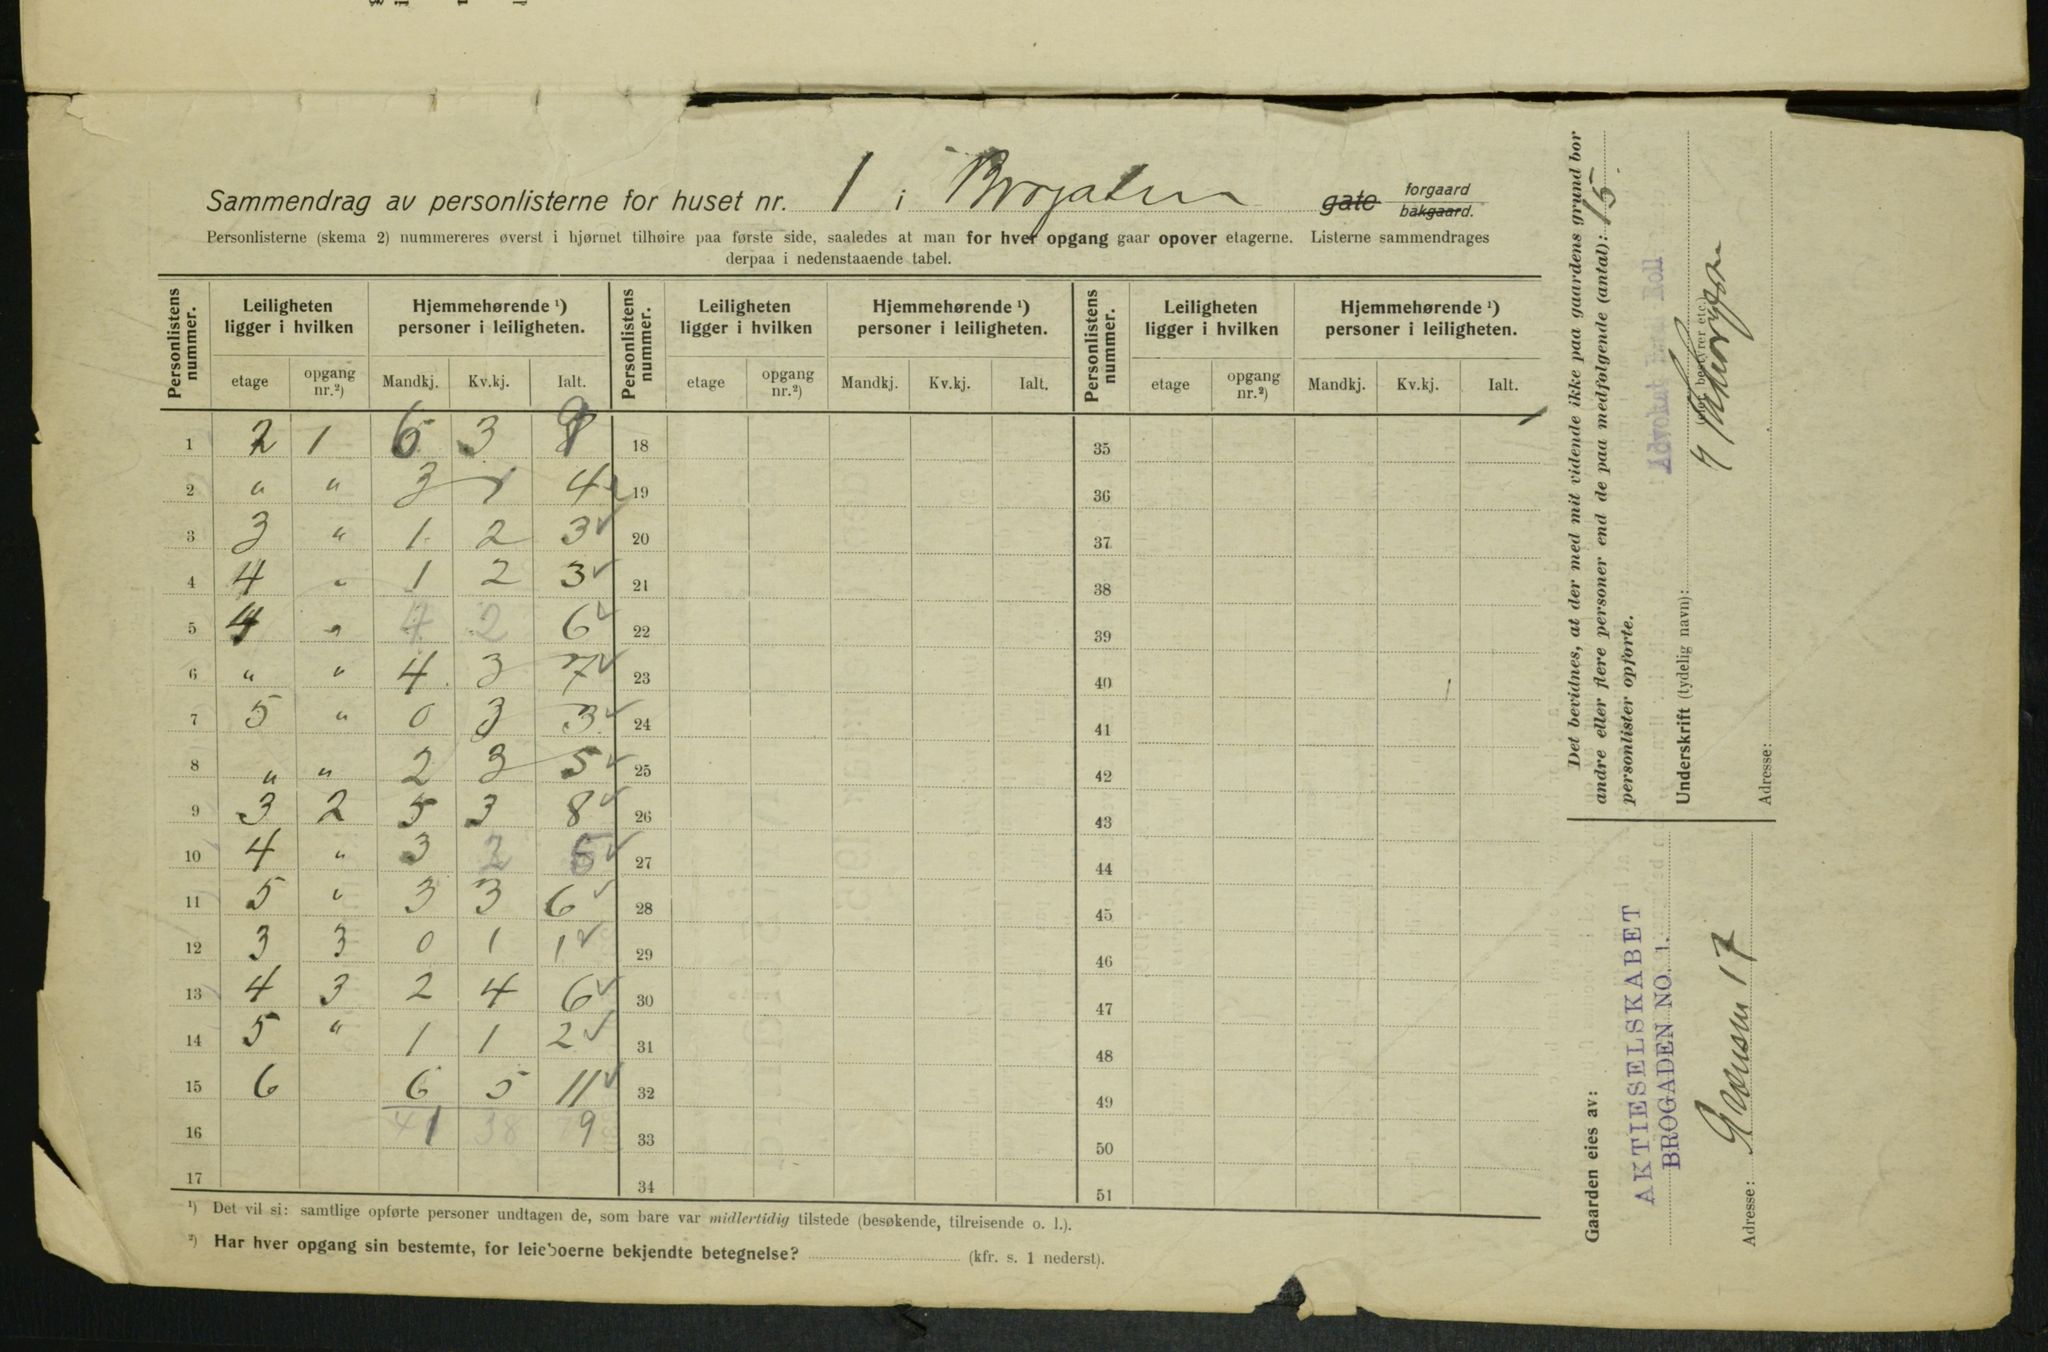 Sammendrag av personlisterne for huset nr. 1 i Brogaten gate forgaard bakgaard.
Personlisterne (skema 2) nummereres øverst i hjørnet tilhøire paa første side, saaledes at man for hver opgang gaar opover etagerne. Listerne sammendrages
derpaa i nedenstaaende tabel.
Personlistens nummer. Leiligheten ligger i hvilken Hjemmehørende ¹) personer i leiligheten. Personlistens nummer. Leiligheten ligger i hvilken Hjemmehørende ¹) personer i leiligheten. Personlistens nummer. Leiligheten ligger i hvilken Hjemmehørende ¹) personer i leiligheten.
etage opgang nr.²) Mandkj. Kv.kj. Ialt. etage opgang nr.²) Mandkj. Kv.kj. Ialt. etage opgang nr.²) Mandkj. Kv.kj. Ialt.
1 2 1 6 3 9 18 35
2 " " 3 1 4 19 36
3 3 " 1 2 3 20 37
4 4 " 1 2 3 21 38
5 4 " 4 2 6 22 39
6 " " 4 3 7 23 40
7 5 " 0 3 3 24 41
8 " " 2 3 5 25 42
9 3 2 5 3 8 26 43
10 4 " 3 2 5 27 44
11 5 " 3 3 6 28 45
12 3 3 0 1 1 29 46
13 4 3 2 4 6 30 47
14 5 " 1 1 2 31 48
15 6 6 5 11 32 49
16 41 38 79 33 50
17 34 51
¹) Det vil si: samtlige opførte personer undtagen de, som bare var midlertidig tilstede (besøkende, tilreisende o. l.).
²) Har hver opgang sin bestemte, for leieboerne bekjendte betegnelse? (kfr. s. 1 nederst).
Det bevidnes, at der med mit vidende ikke paa gaardens grund bor
andre eller flere personer end de paa medfølgende (antal): 15
personlister opførte.
Advokat Roll
Underskrift (tydelig navn):
(eier, bestyrer etc.)
Adresse:
Gaarden eies av:
AKTIESELSKABET
BROGADEN NO. 1.
Adresse: 17